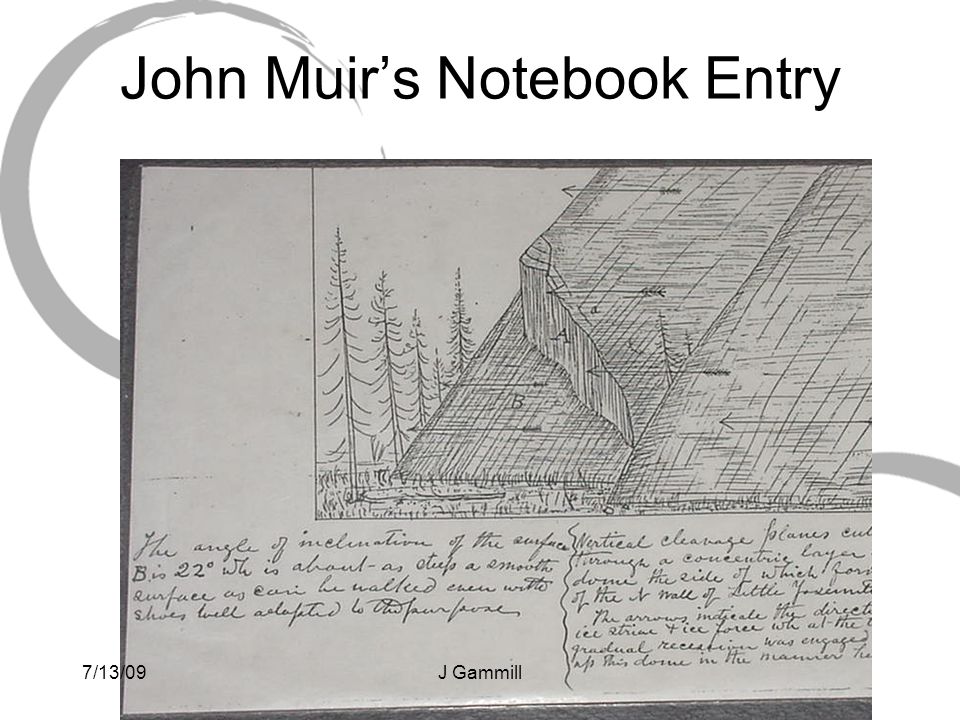 John Muir’s Notebook Entry
a
A
B
The angle of inclination of the surface
B. is 22° wh is about as steep a smooth
surface as can be walked even with
shoes well adapted to the purpose
Vertical cleavage planes cut
through a concentric layer
dome the side of which for
of the N wall of Little Yosemit
The arrows indicate the direct
ice striae & ice force wh at the
gradual recession was engaged
this dome in the manner he
7/13/09
J Gammill